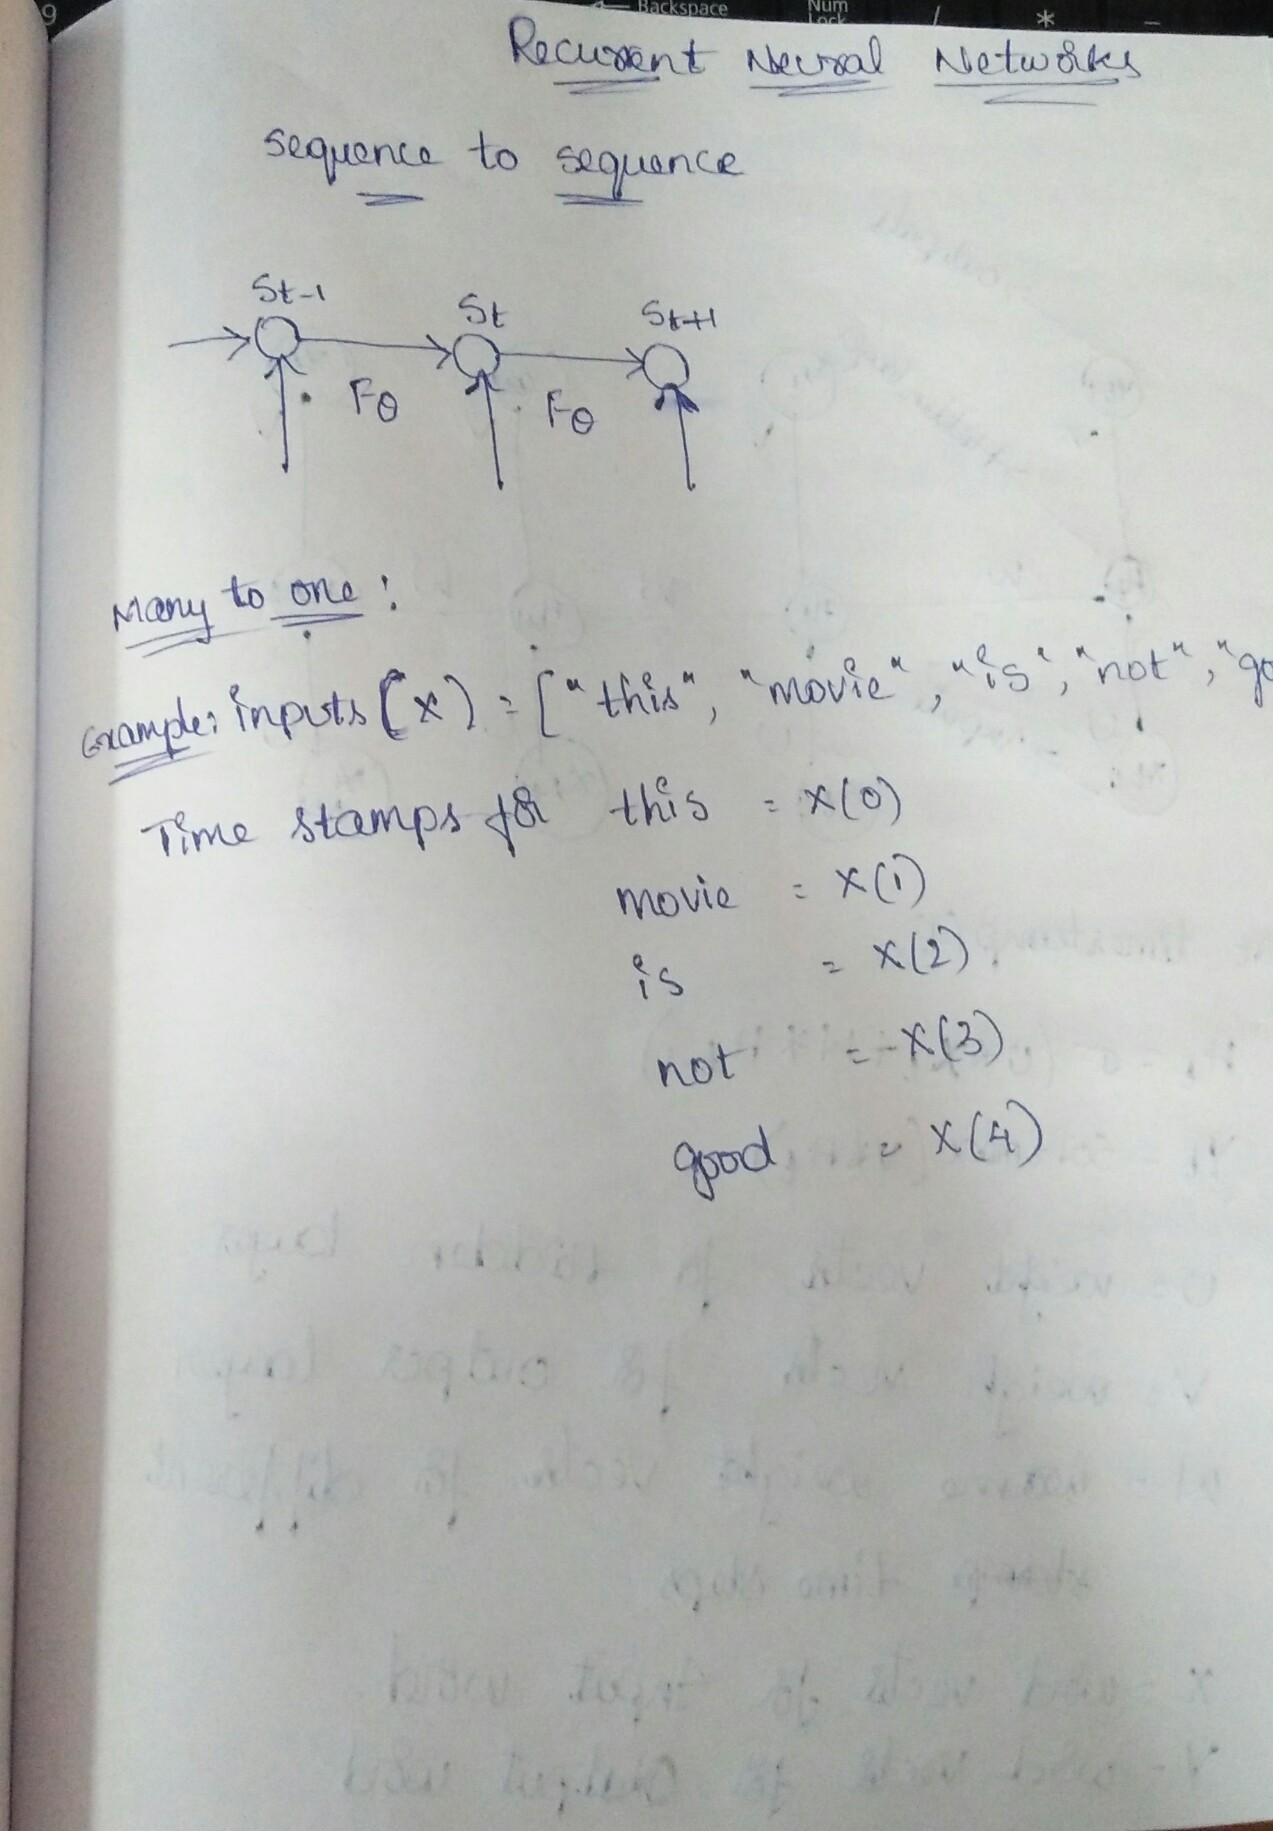 Backspace
Num
Lock
/
*
9
Recurrent Neural Networks
sequence to sequence
St-1
St
St+1
Fθ
Fθ
Many to one:
Example: inputs (x) = ["this", "movie", "is", "not", "go
Time stamps for this = x(0)
movie = x(1)
is = x(2)
not = x(3)
good = x(4)